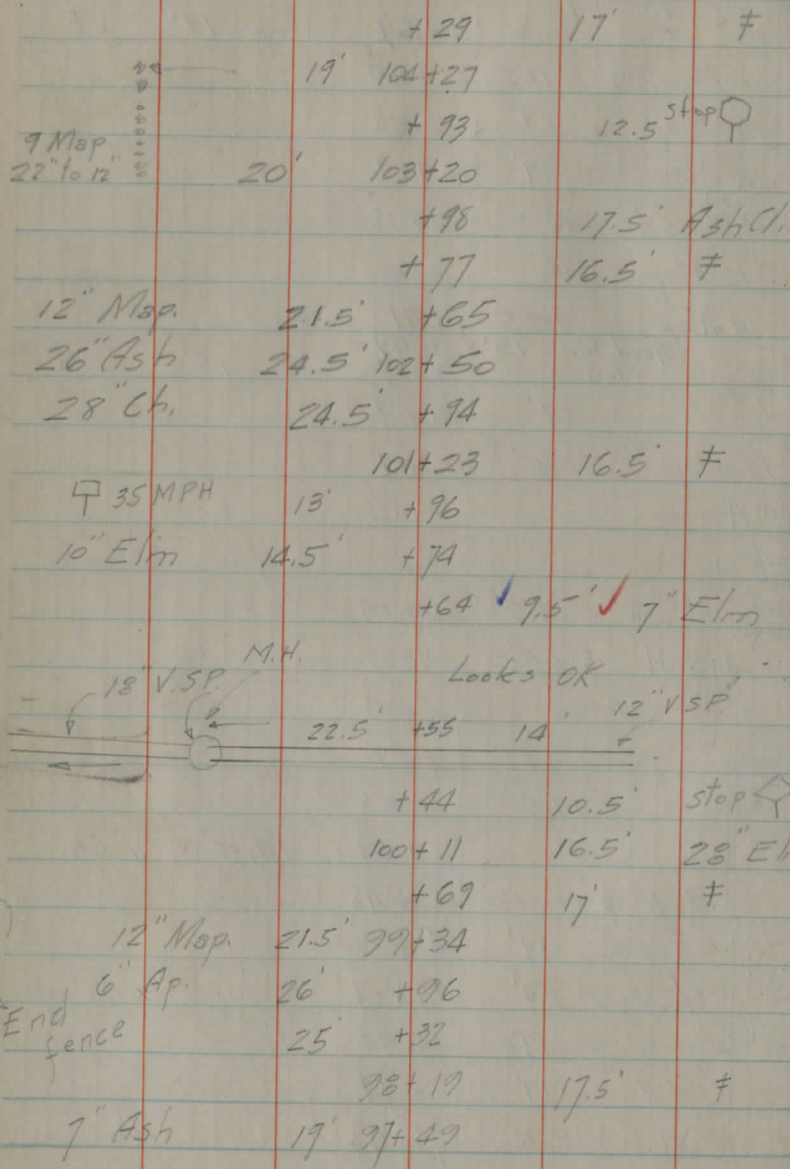 +29 17' ŧ
19' 104+27
+93 12.5' stop
9 Map
22" to 12" 20' 103+20
+98 17.5' Ash Cl.
+77 16.5' ŧ
12" Map. 21.5' +65
26" Ash 24.5' 102+50
28" Ch. 24.5' +94
101+23 16.5' ŧ
35 MPH 13' +96
10" Elm 14.5' +74
+64 ✓ 9.5' ✓ 7" Elm
M.H. Looks OK
18" V.S.P. 12" V.S.P.
? 22.5' +55 14'
+44 10.5' stop
100+11 16.5' 28" El
+69 17' ŧ
12" Map. 21.5' 99+34
6" Ap. 26' +96
End
fence 25' +32
98+19 17.5' ŧ
7" Ash 19' 97+49